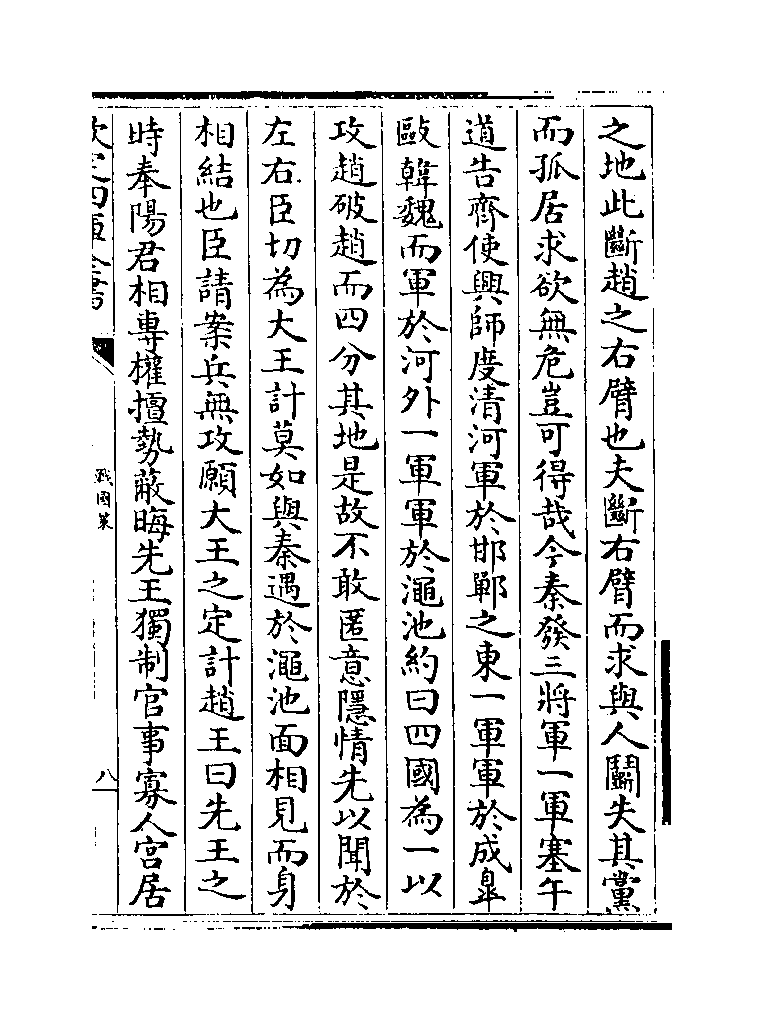 之地此斷趙之右臂也夫斷右臂而求與人鬭失其黨
而孤居求欲無危豈可得哉今秦發三將軍一軍塞午
道告齊使興師度清河軍於邯鄲之東一軍軍於成臯
敺韓魏而軍於河外一軍軍於澠池約曰四國為一以
攻趙破趙而四分其地是故不敢匿意隱情先以聞於
左右臣切為大王計莫如與秦遇於澠池面相見而身
相結也臣請案兵無攻願大王之定計趙王曰先王之
時奉陽君相專權擅勢蔽晦先王獨制官事寡人宮居
欽定四庫全書
戰國策
八